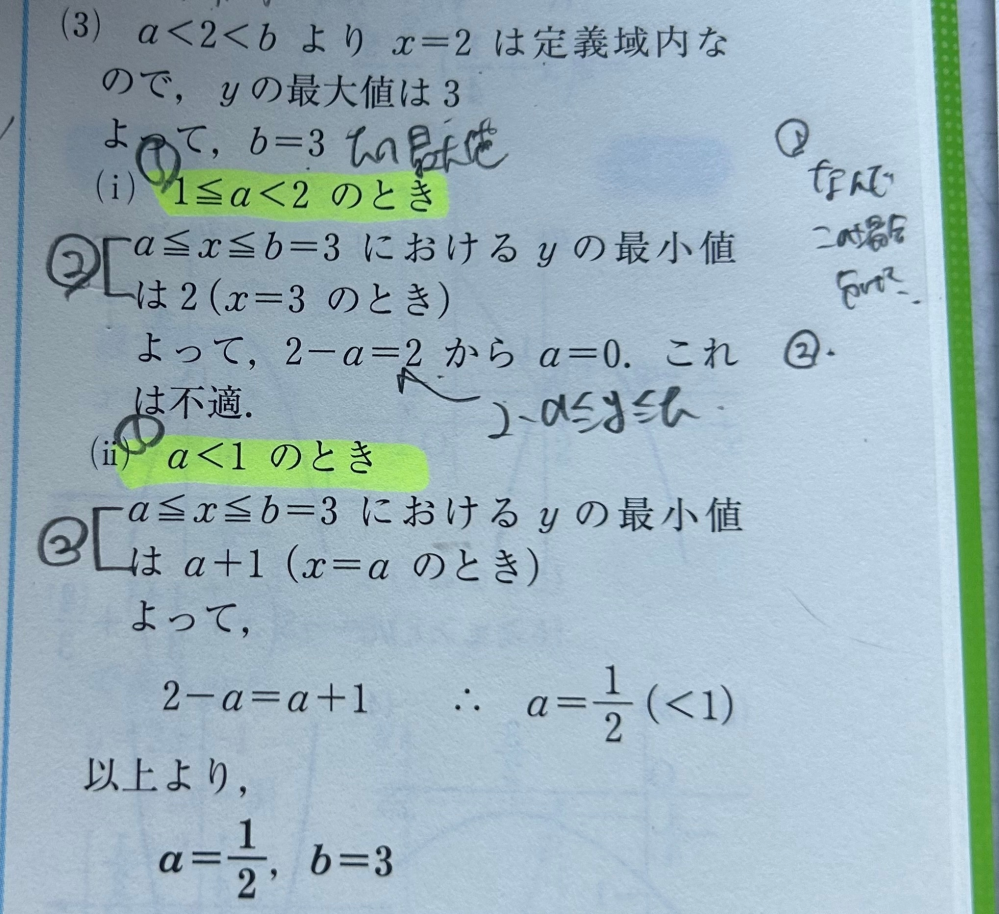 (3) a<2<b より x=2 は定義域内な
ので，y の最大値は 3
よって，b=3 の最大値
① なんで
(i) 1≦a<2 のとき
この場合
② a≦x≦b=3 における y の最小値
は 2 (x=3 のとき)
よって，2−a=2 から a=0．これ ②.
は不適．
2-a≤y≤b
① (ii) a<1 のとき
② a≦x≦b=3 における y の最小値
は a+1 (x=a のとき)
よって，
2−a=a+1 ∴ a=1/2 (<1)
以上より，
a=1/2, b=3